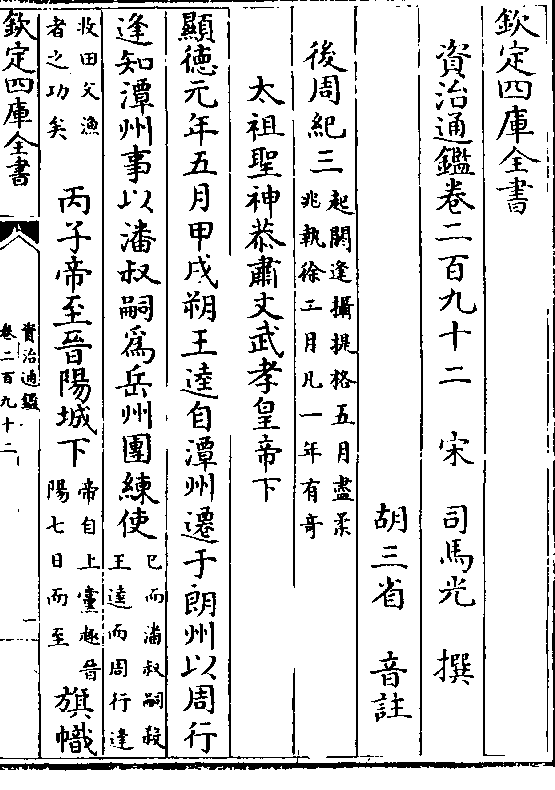 欽定四庫全書
資治通鑑卷二百九十二　宋　司馬光　撰
胡三省　音註
後周紀三
起閼逢攝提格五月盡柔
兆執徐二月凡一年有奇
太祖聖神恭肅文武孝皇帝下
顯德元年五月甲戌朔王逵自潭州遷于朗州以周行
逢知潭州事以潘叔嗣為岳州團練使
已而潘叔嗣殺
王逵而周行逢
收田父漁
者之功矣
丙子帝至晉陽城下
帝自上黨趣晉
陽七日而至
旗幟
欽定四庫全書
資治通鑑
卷二百九十二
一